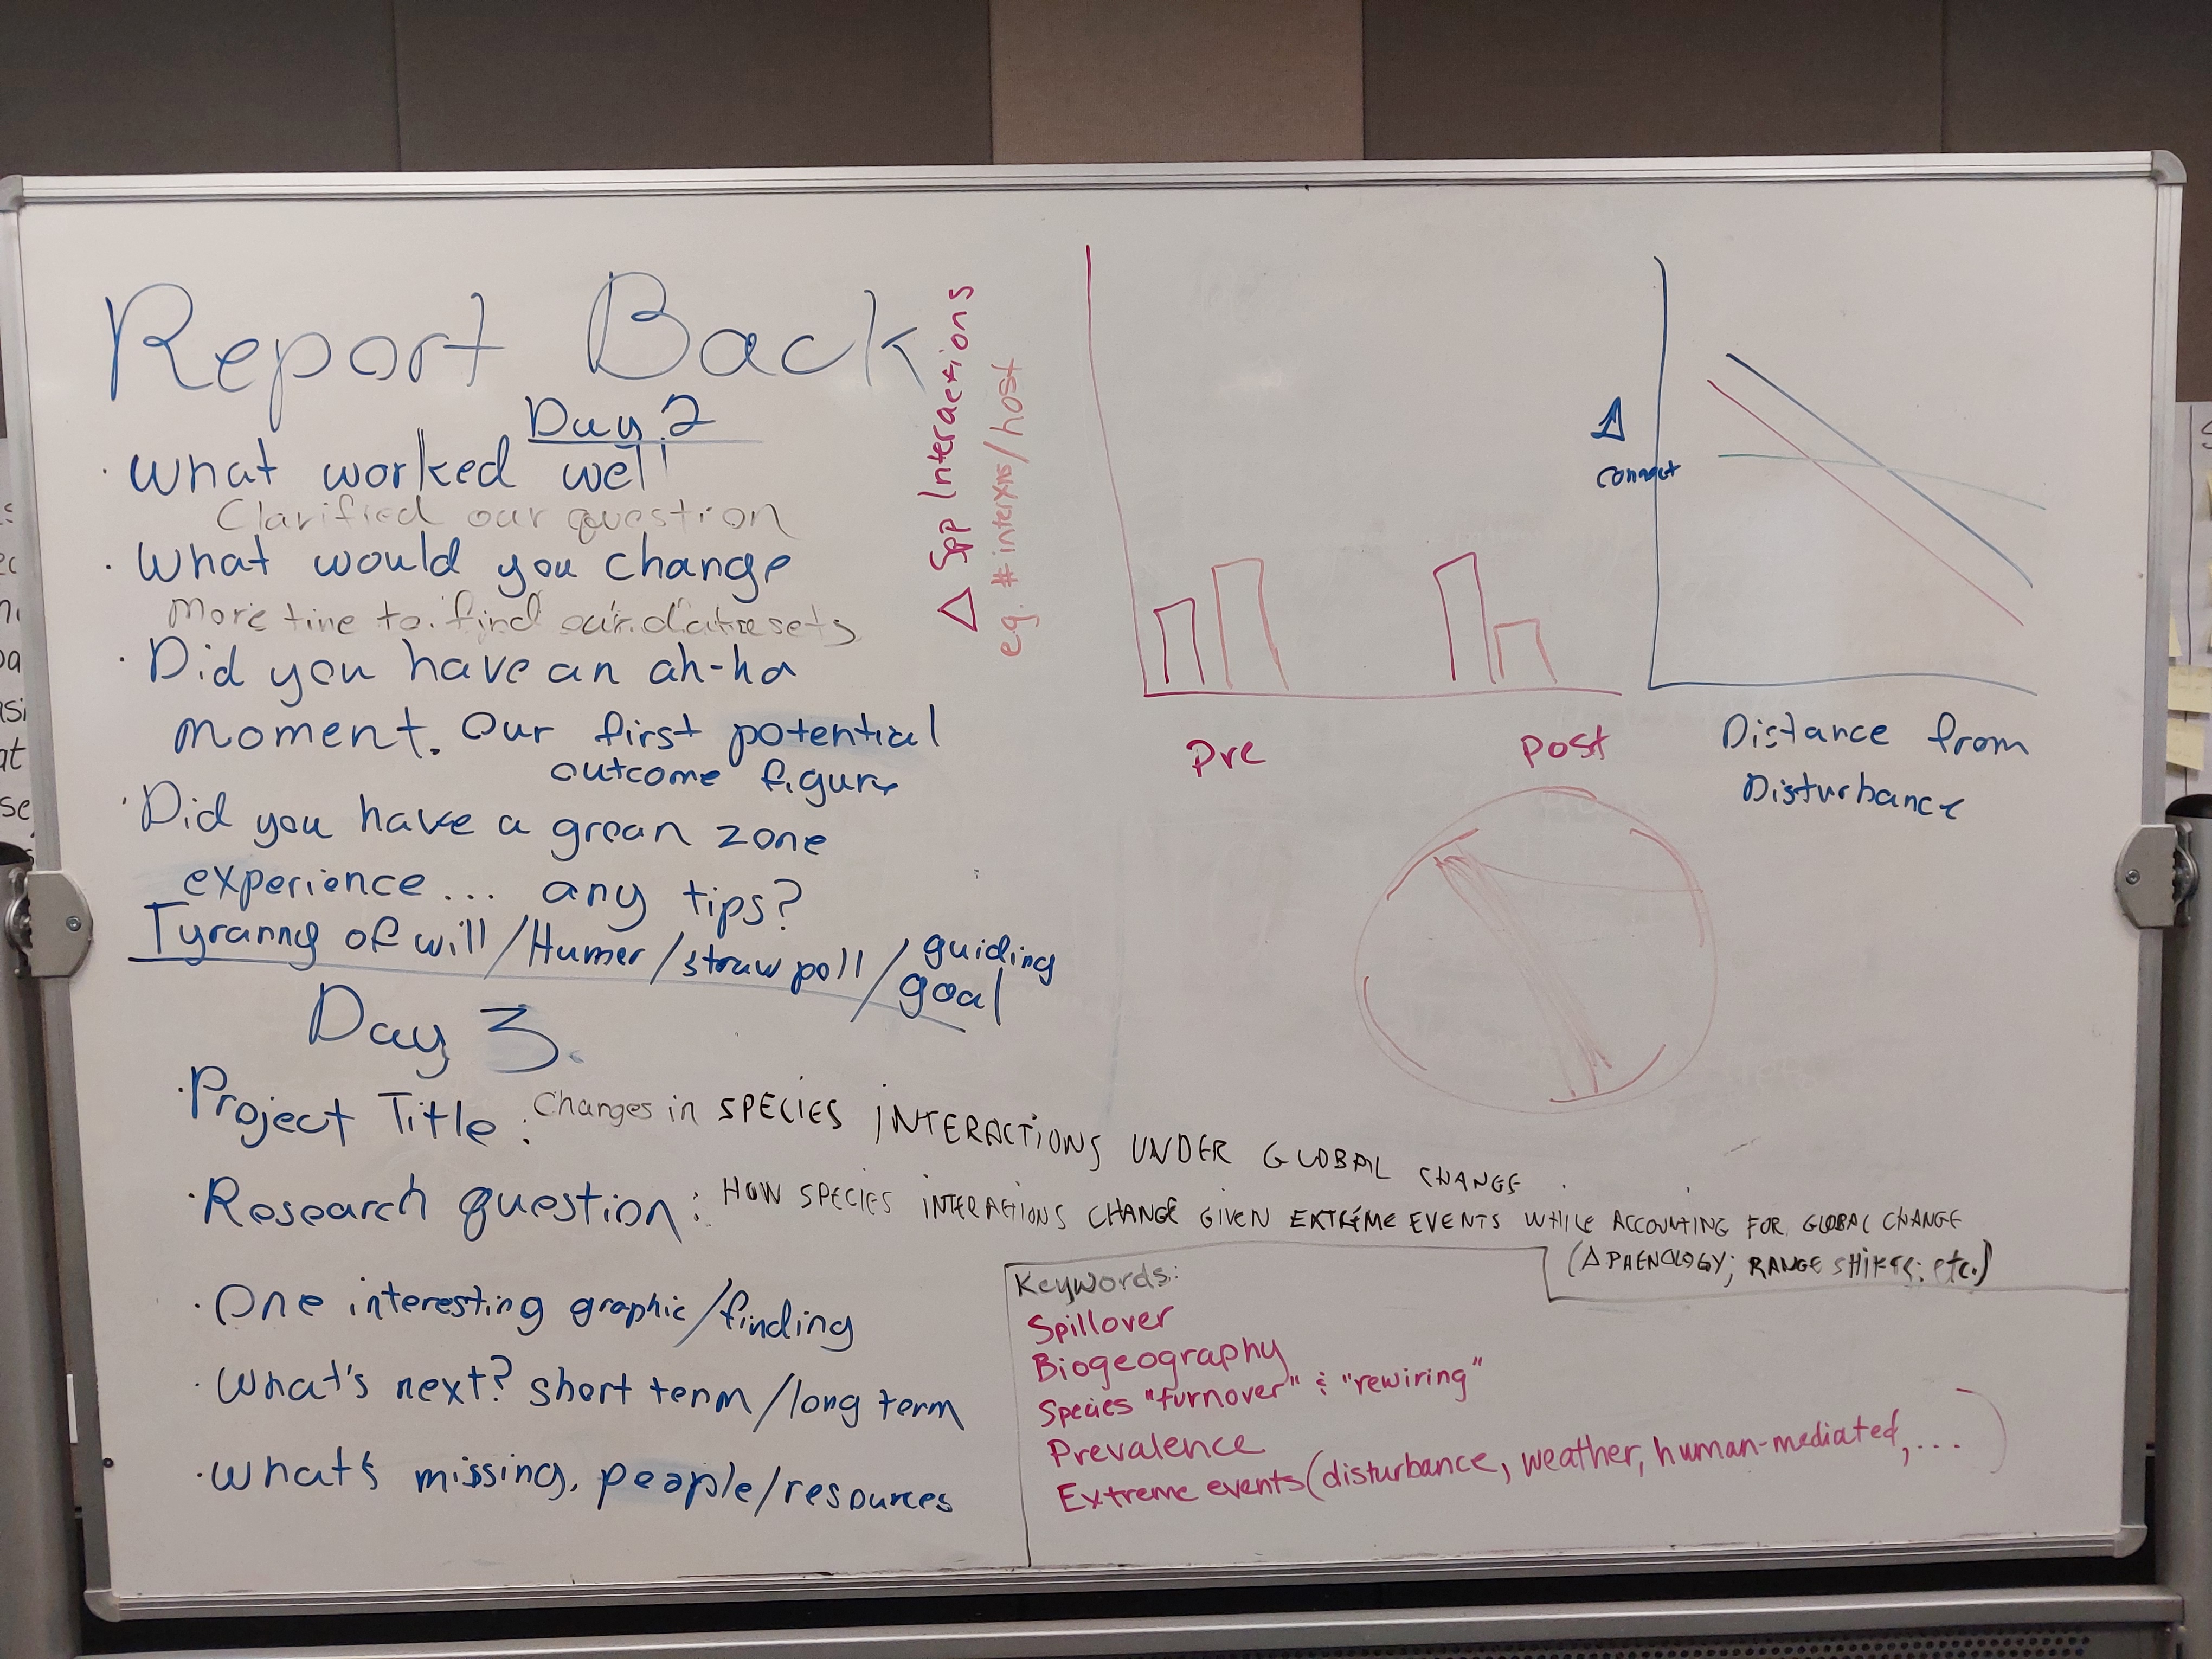 Report Back
Day 2
· What worked well
Clarified our question
· What would you change
More time to find our datasets
· Did you have an ah-ha
moment. Our first potential
outcome figure
· Did you have a groan zone
experience... any tips?
Tyranny of will/Humer/straw poll/guiding
goal
Day 3.
· Project Title: Changes in SPECIES INTERACTIONS UNDER GLOBAL CHANGE.
· Research question: HOW SPECIES INTERACTIONS CHANGE GIVEN EXTREME EVENTS WHILE ACCOUNTING FOR GLOBAL CHANGE
(Δ PHENOLOGY; RANGE SHIFTS; etc.)
· One interesting graphic/finding
· What's next? short term/long term
· What's missing, people/resources
Δ Spp Interactions
e.g. # interxns/host
Pre
post
Δ
connect
Distance from
Disturbance
Keywords:
Spillover
Biogeography
Species "turnover" & "rewiring"
Prevalence
Extreme events (disturbance, weather, human-mediated, ...)